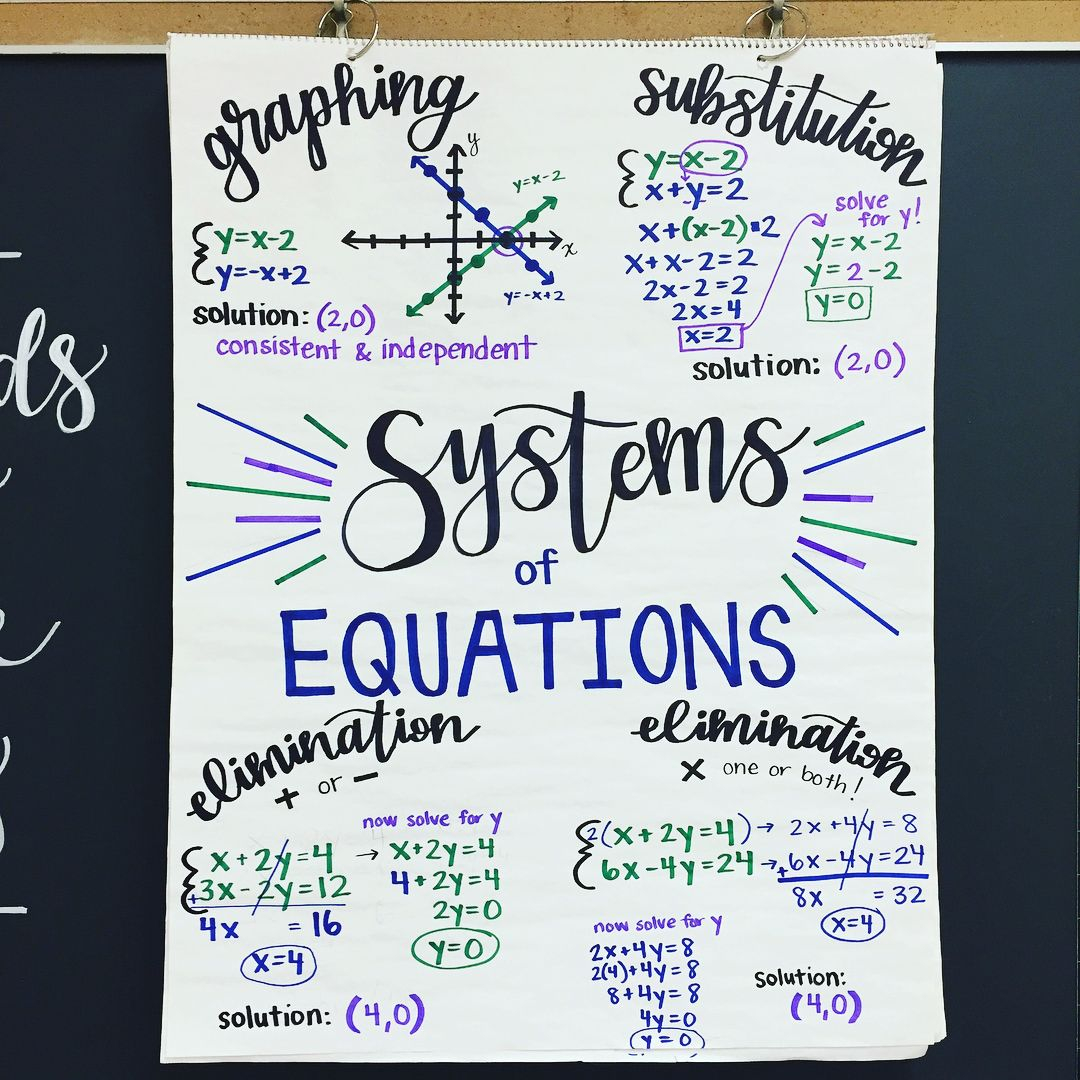 graphing
y
y=x-2
x
y=-x+2
y=x-2
y=-x+2
solution: (2,0)
consistent & independent
substitution
y=x-2
x+y=2
x+(x-2)=2
x+x-2=2
2x-2=2
2x=4
x=2
solve
for y!
y=x-2
y=2-2
y=0
solution: (2,0)
ds
Systems
of
EQUATIONS
elimination
+ or −
x+2y=4
+3x-2y=12
4x =16
x=4
now solve for y
→ x+2y=4
4+2y=4
2y=0
y=0
solution: (4,0)
elimination
× one or both!
2(x+2y=4) → 2x+4y=8
6x-4y=24 → +6x-4y=24
8x =32
x=4
now solve for y
2x+4y=8
2(4)+4y=8
8+4y=8
4y=0
y=0
solution:
(4,0)